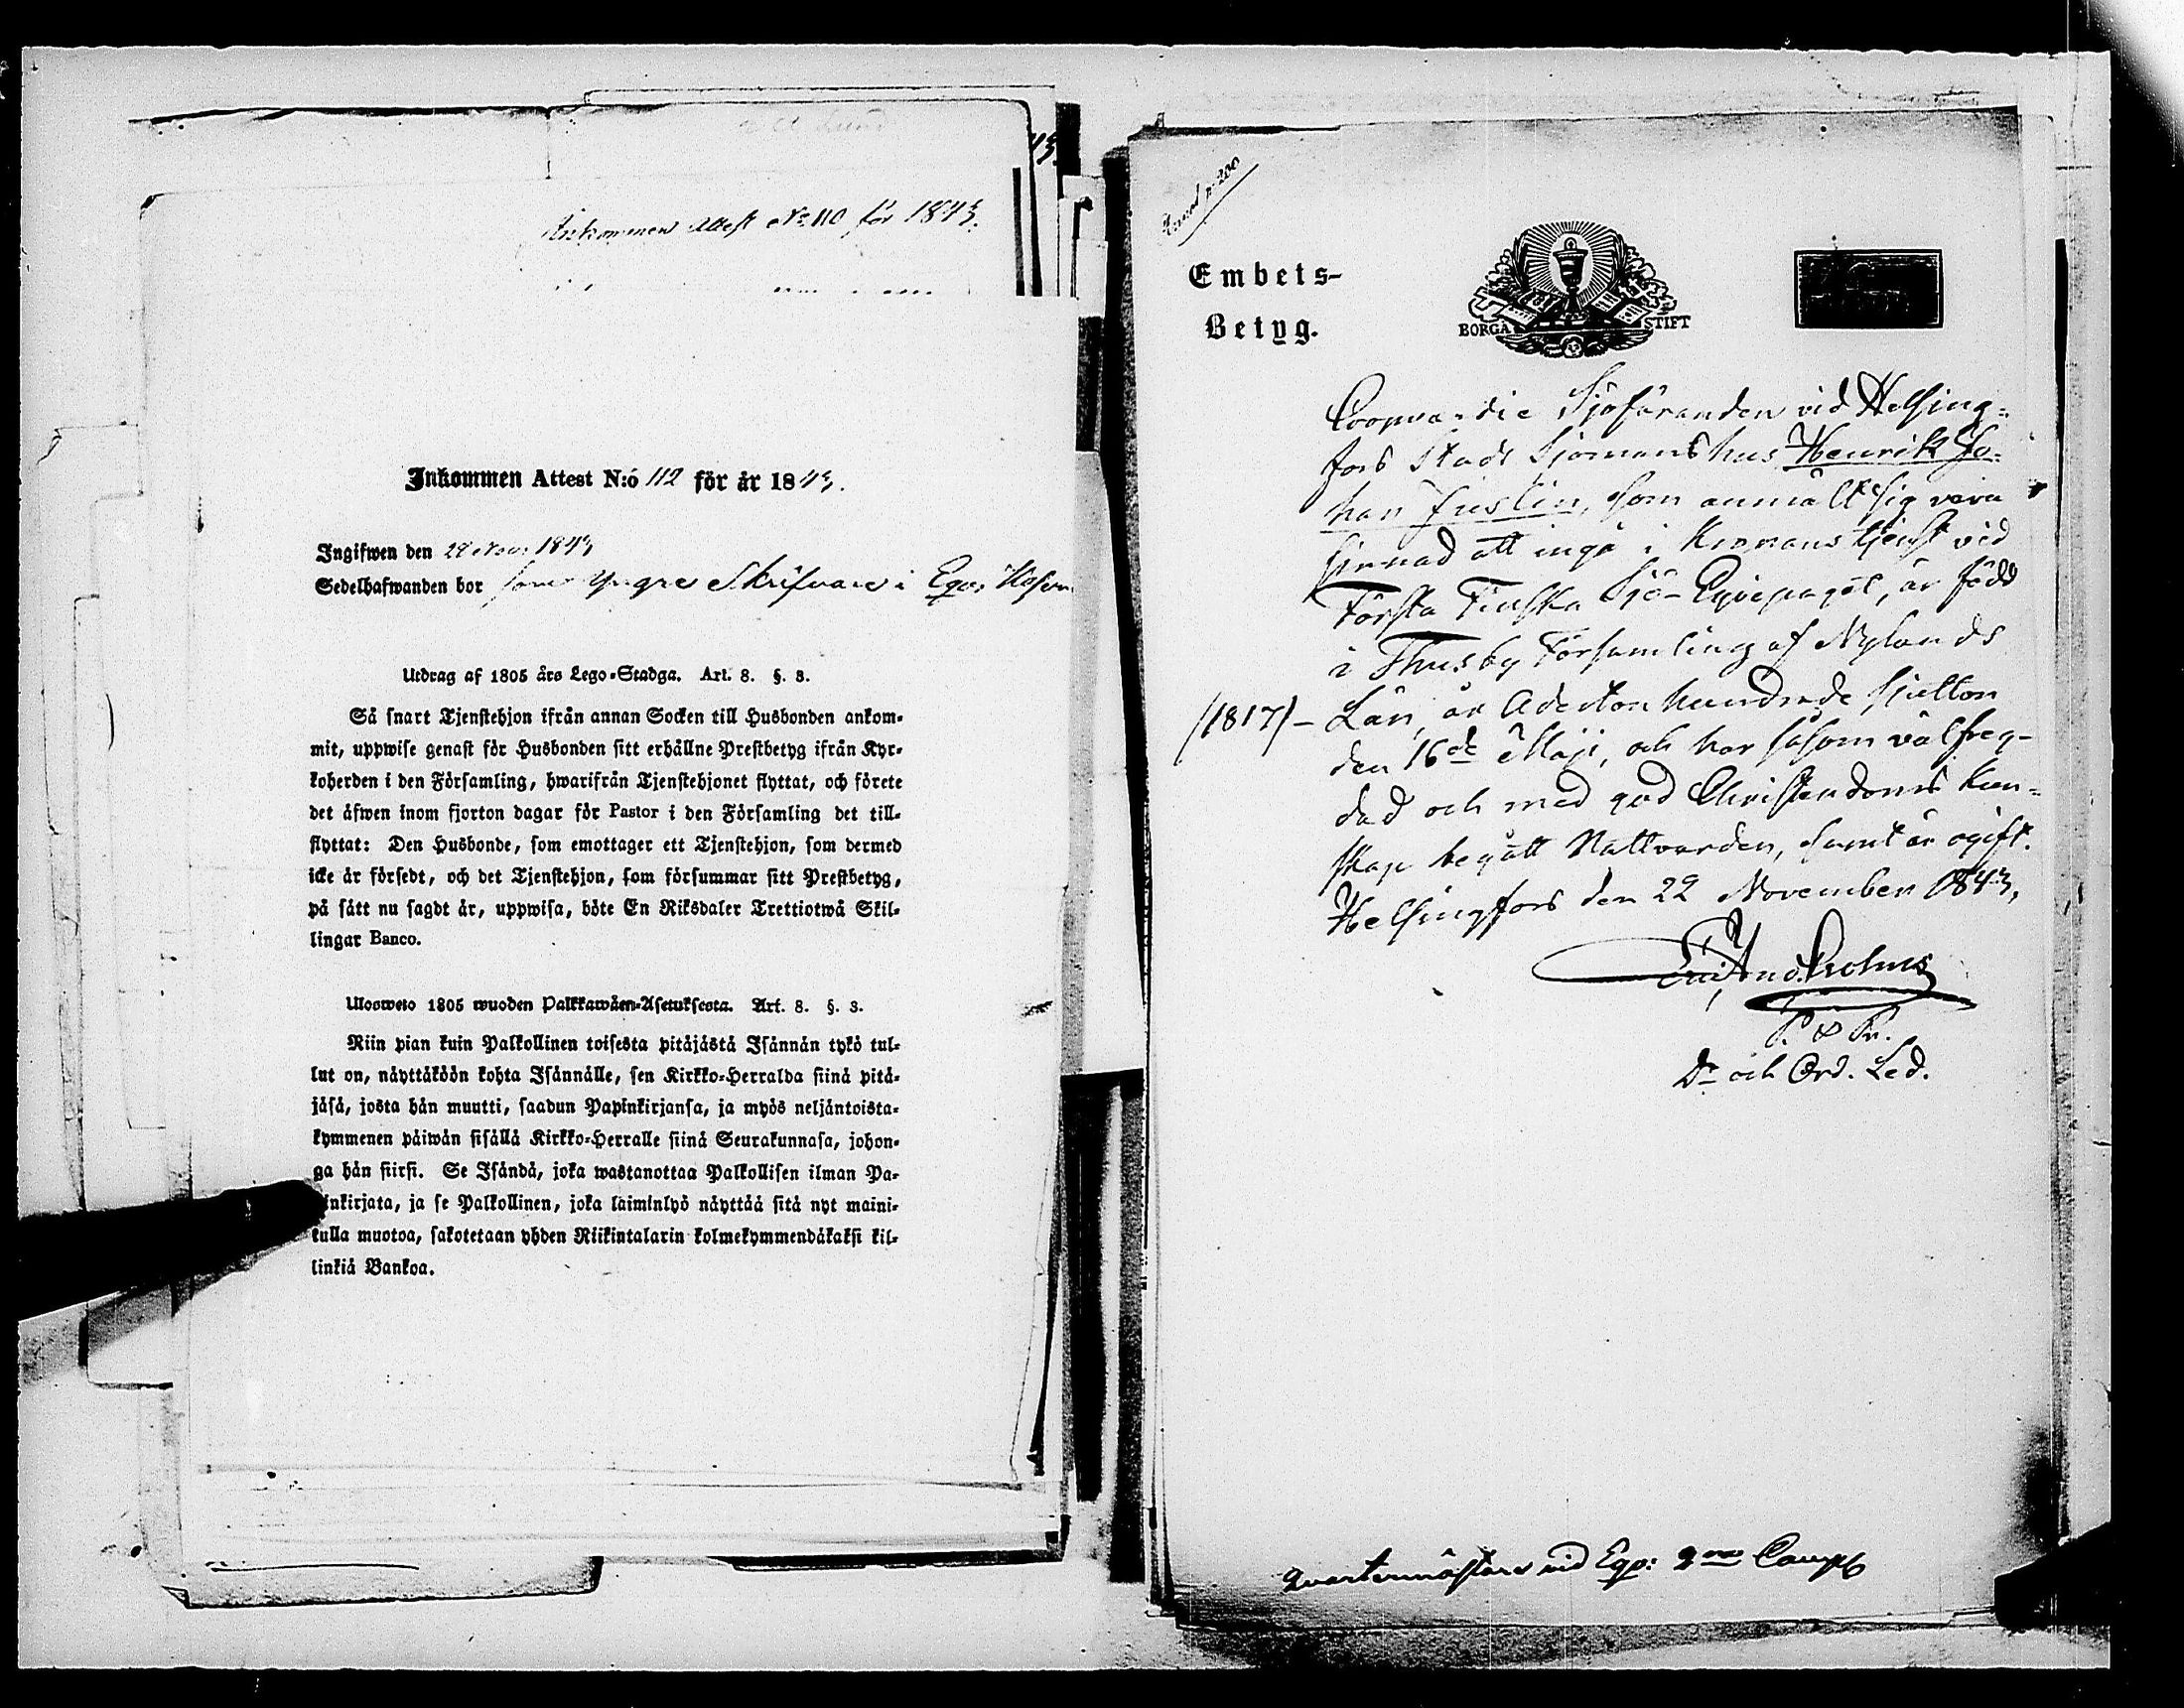 Inkommen Attest No 110 för 1843.
Inkommen Attest N:ó 112 för år 1843.
Ingifwen den 28 Nov: 1843
Sedelhafwanden bor som Yngre Skrifvare i Eqvi:
Utdrag af 1805 års Lego-Stadga. Art. 8. §. 3.
Så snart Tjenstehjon ifrån annan Socken till Husbonden ankom-
mit, uppwise genast för Husbonden sitt erhållne Prestbetyg ifrån Kyr-
koherden i den Församling, hwarifrån Tjenstehjonet flyttat, och förete
det äfwen inom fjorton dagar för Pastor i den Församling det till-
flyttat: Den Husbonde, som emottager ett Tjenstehjon, som dermed
icke är försedt, och det Tjenstehjon, som försummar sitt Prestbetyg,
på sätt nu sagdt är, uppwisa, böte En Riksdaler Trettiotwå Skil-
lingar Banco.
Ulosweto 1805 wuoden Palkkawäen-Asetuksesta. Art. 8. §. 3.
Niin pian kuin Palkollinen toisesta pitäjästä Isännän tykö tul-
lut on, näyttäköön kohta Isännälle, sen Kirkko-Herralda siinä pitä-
jäsä, josta hän muutti, saadun Papinkirjansa, ja myös neljäntoista-
kymmenen päiwän sisällä Kirkko-Herralle siinä Seurakunnasa, johon-
ga hän siirsi. Se Isändä, joka wastanottaa Palkollisen ilman Pa-
inkirjata, ja se Palkollinen, joka laiminlyö näyttää sitä nyt maini-
tulla muotoa, sakotetaan yhden Riikintalarin kolmekymmendäkaksi kil-
linkiä Bankoa.
Embets-
Betyg.
BORGÅ STIFT
Coopvardie Sjöfaranden vid Helsing-
fors Stads Sjömanshus Henrik Jo-
han Juslin, som anmält sig vara
sinnad att ingå i Kronans tjenst vid
Första Finska Sjö-Eqvipaget, är född
i Thusby Församling af Nylands
(1817) - Län, år Adertonhundrade sjutton
den 16de Maji, och har såsom välfreg-
dad och med god Christendoms kun-
skap begått Nattvarden, samt är ogift.
Helsingfors den 22 November 1843.
P. & Pr.
Dr och Ord. Led.
Qvartermästare vid Eqp: 2dra Comp